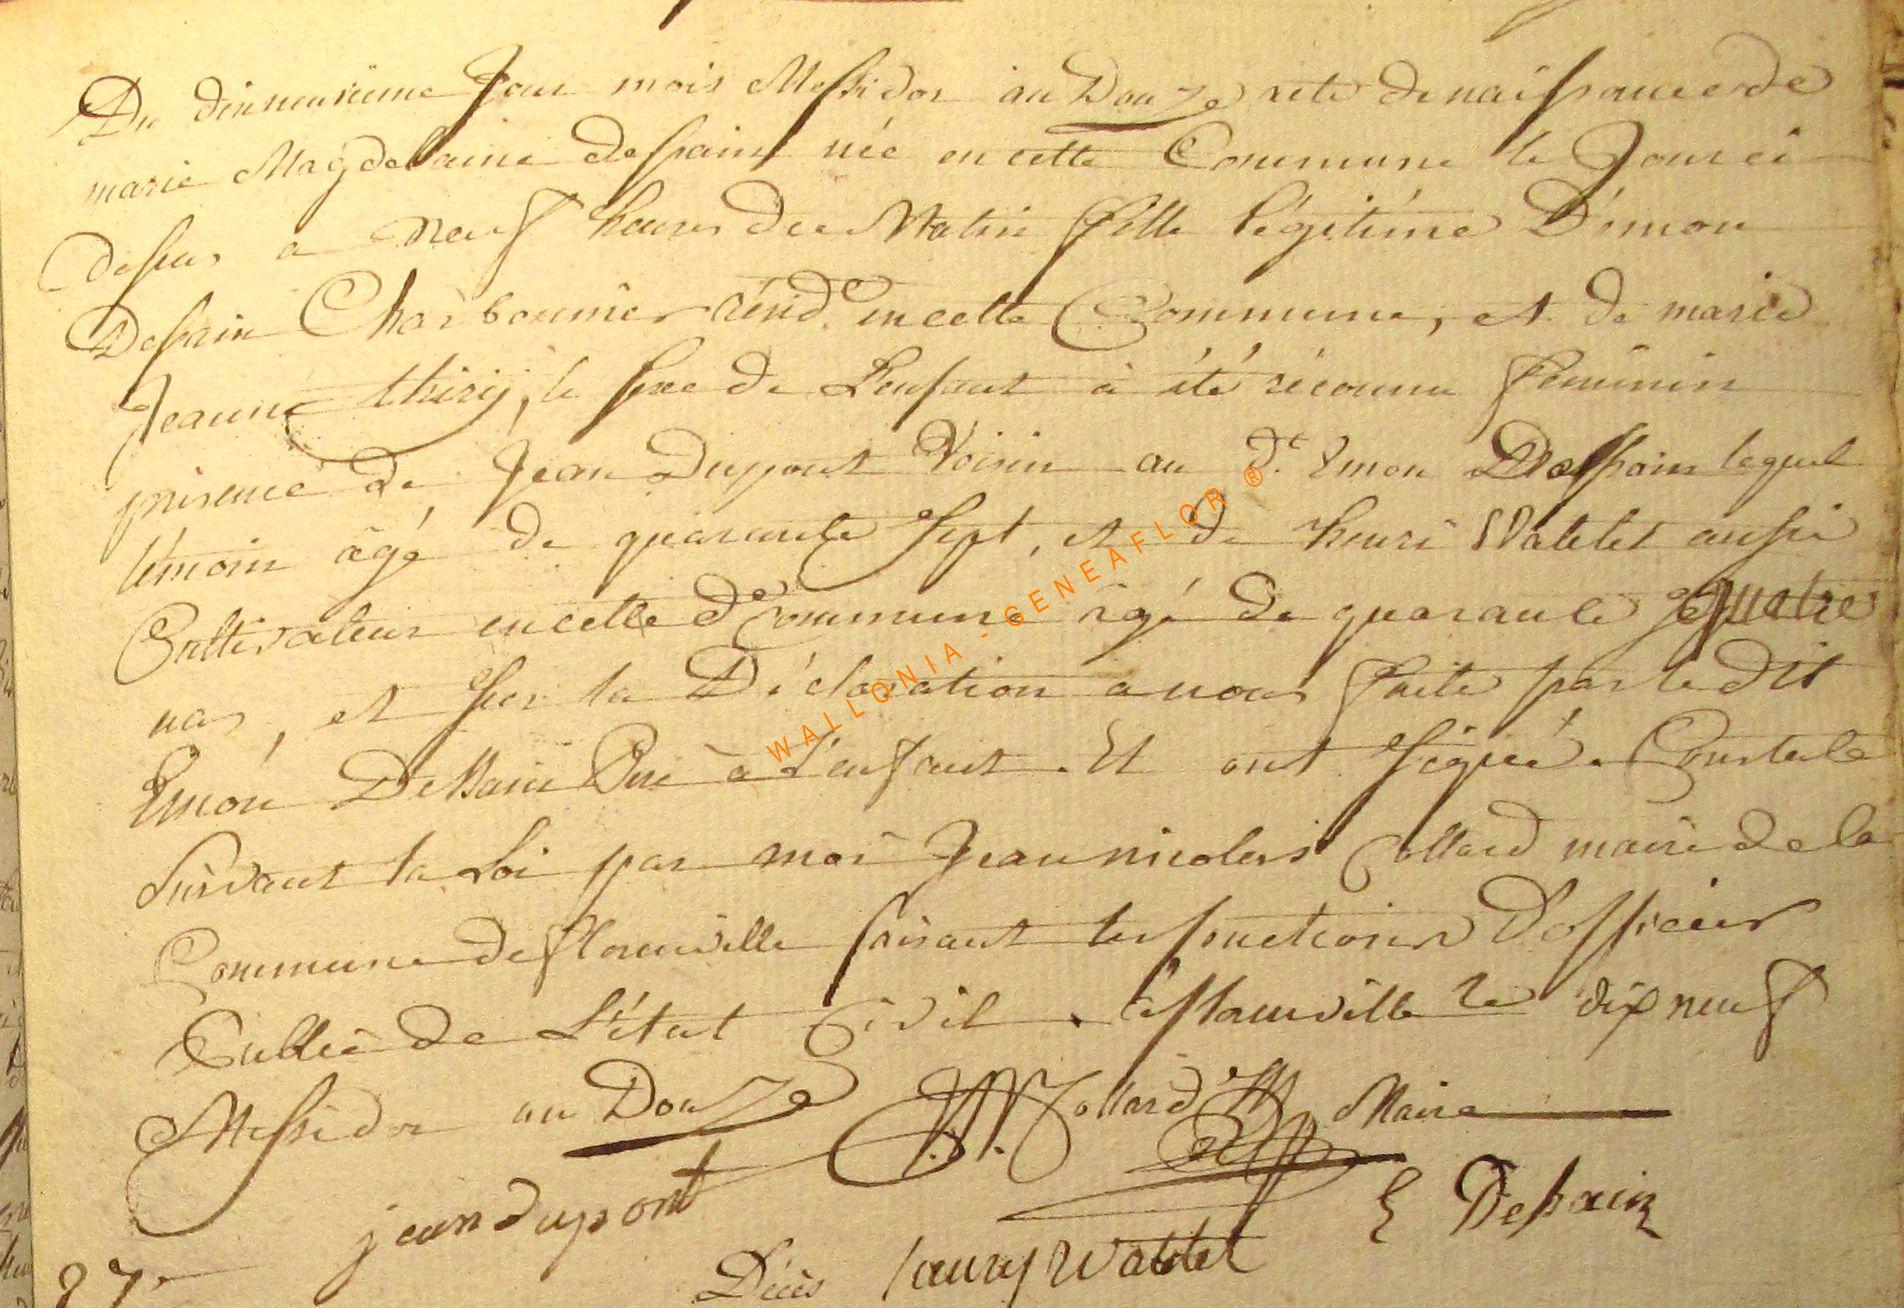 Du dixneuvieme Jour mois Messidor an Douze acte de naissance de
marie Magdelaine dessain née en cette Commune le Jour ci
dessus a neuf heures du Matin fille légitime D'émon
Dessain Charbonnier résid. en cette Commune, et de marie
Jeanne thiry, le sexe de L'enfant à été réconnu féminin
présence de Jean Dupont Voisin au d.t Emon Dessain lequel
témoin âgé de quarante sept, et de henri Watelet aussi
Cultivateur en cette d. Commune âgé de quarante quatre
ans, et sur la Déclaration a nous faite par le dit
Emon Dessain Pere à L'enfant. Et ont signé. Constaté
Suivant la Loi par moi Jean nicolas Collard maire de la
Commune de florenville faisant les fonctions D'officier
Public de L'état Civil. à florenville le dix neuf
Messidor an Douze J.N. Collard Maire
jean dupont E Dessain
87. Décès Watelet
WALLONIA - GENEAFLOR ®